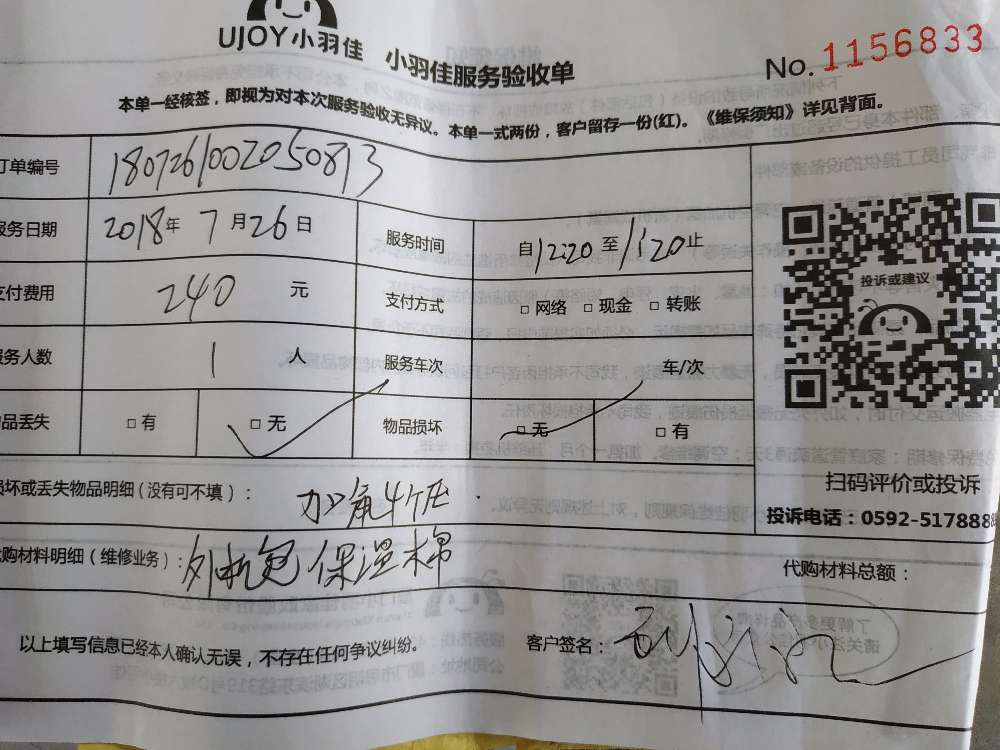 UJOY小羽佳
小羽佳服务验收单
No. 1156833
本单一经核签，即视为对本次服务验收无异议。本单一式两份，客户留存一份(红)。《维保须知》详见背面。
订单编号 1807261002050813
服务日期 2018年 7月26日 服务时间 自12:20至1:20止
支付费用 240 元 支付方式 □ 网络 □ 现金 □ 转账
服务人数 1 人 服务车次 车/次
物品丢失 □ 有 □ 无 物品损坏 □ 无 □ 有
投诉或建议
扫码评价或投诉
投诉电话：0592-517888
损坏或丢失物品明细（没有可不填）： 加氟4个压
代购材料明细（维修业务）： 外机 保温棉
代购材料总额：
以上填写信息已经本人确认无误，不存在任何争议纠纷。
客户签名：